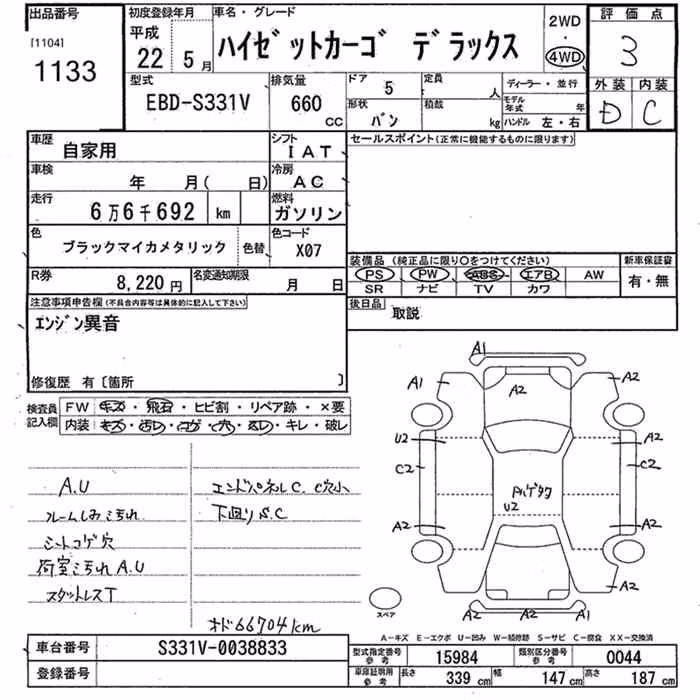 出品番号
[1104]
1133
初度登録年月
平成
22 5月
車名・グレード
ハイゼットカーゴ デラックス
2WD
・
4WD
評価点
3
外装 内装
D C
型式
EBD-S331V
排気量
660
CC
ドア
5
定員
人
ディーラー・並行
形状
バン
積載
kg
モデル年式
年
ハンドル 左・右
車歴
自家用
シフト
IAT
セールスポイント(正常に機能するものに限ります)
車検
年 月( 日)
冷房
AC
走行
6万6千692 km
燃料
ガソリン
色
ブラックマイカメタリック
色替
色コード
X07
装備品 (純正品に限り○をつけてください)
新車保証書
PS PW ABS エアB AW
有・無
SR ナビ TV カワ
R券
8,220円
名変通知期限
月 日
後日品
取説
注意事項申告欄(不具合内容等は具体的に記入して下さい)
エンジン異音
修復歴 有〔箇所 〕
検査員
記入欄
FW キズ・飛石・ヒビ割・リペア跡・×要
内装 キズ・汚レ・コゲ・穴・スレ・キレ・破レ
A.U
フレームしみ汚れ
シートコゲ穴
荷室汚れA.U
スタットレスT
エンドパネルC. C穴小
下廻りS.C
オド66704km
A1
A1
A2
A2
U2
A2
C2
C2
U2
A2
A2
A2
A2
A2
スペア
A-キズ E-エクボ U-凹み W-補修跡 S-サビ C-腐食 XX-交換済
車台番号
S331V-0038833
型式指定番号
参考
15984
類別区分番号
参考
0044
登録番号
車庫証明用
参考
長さ
339 cm
幅
147 cm
高さ
187 cm